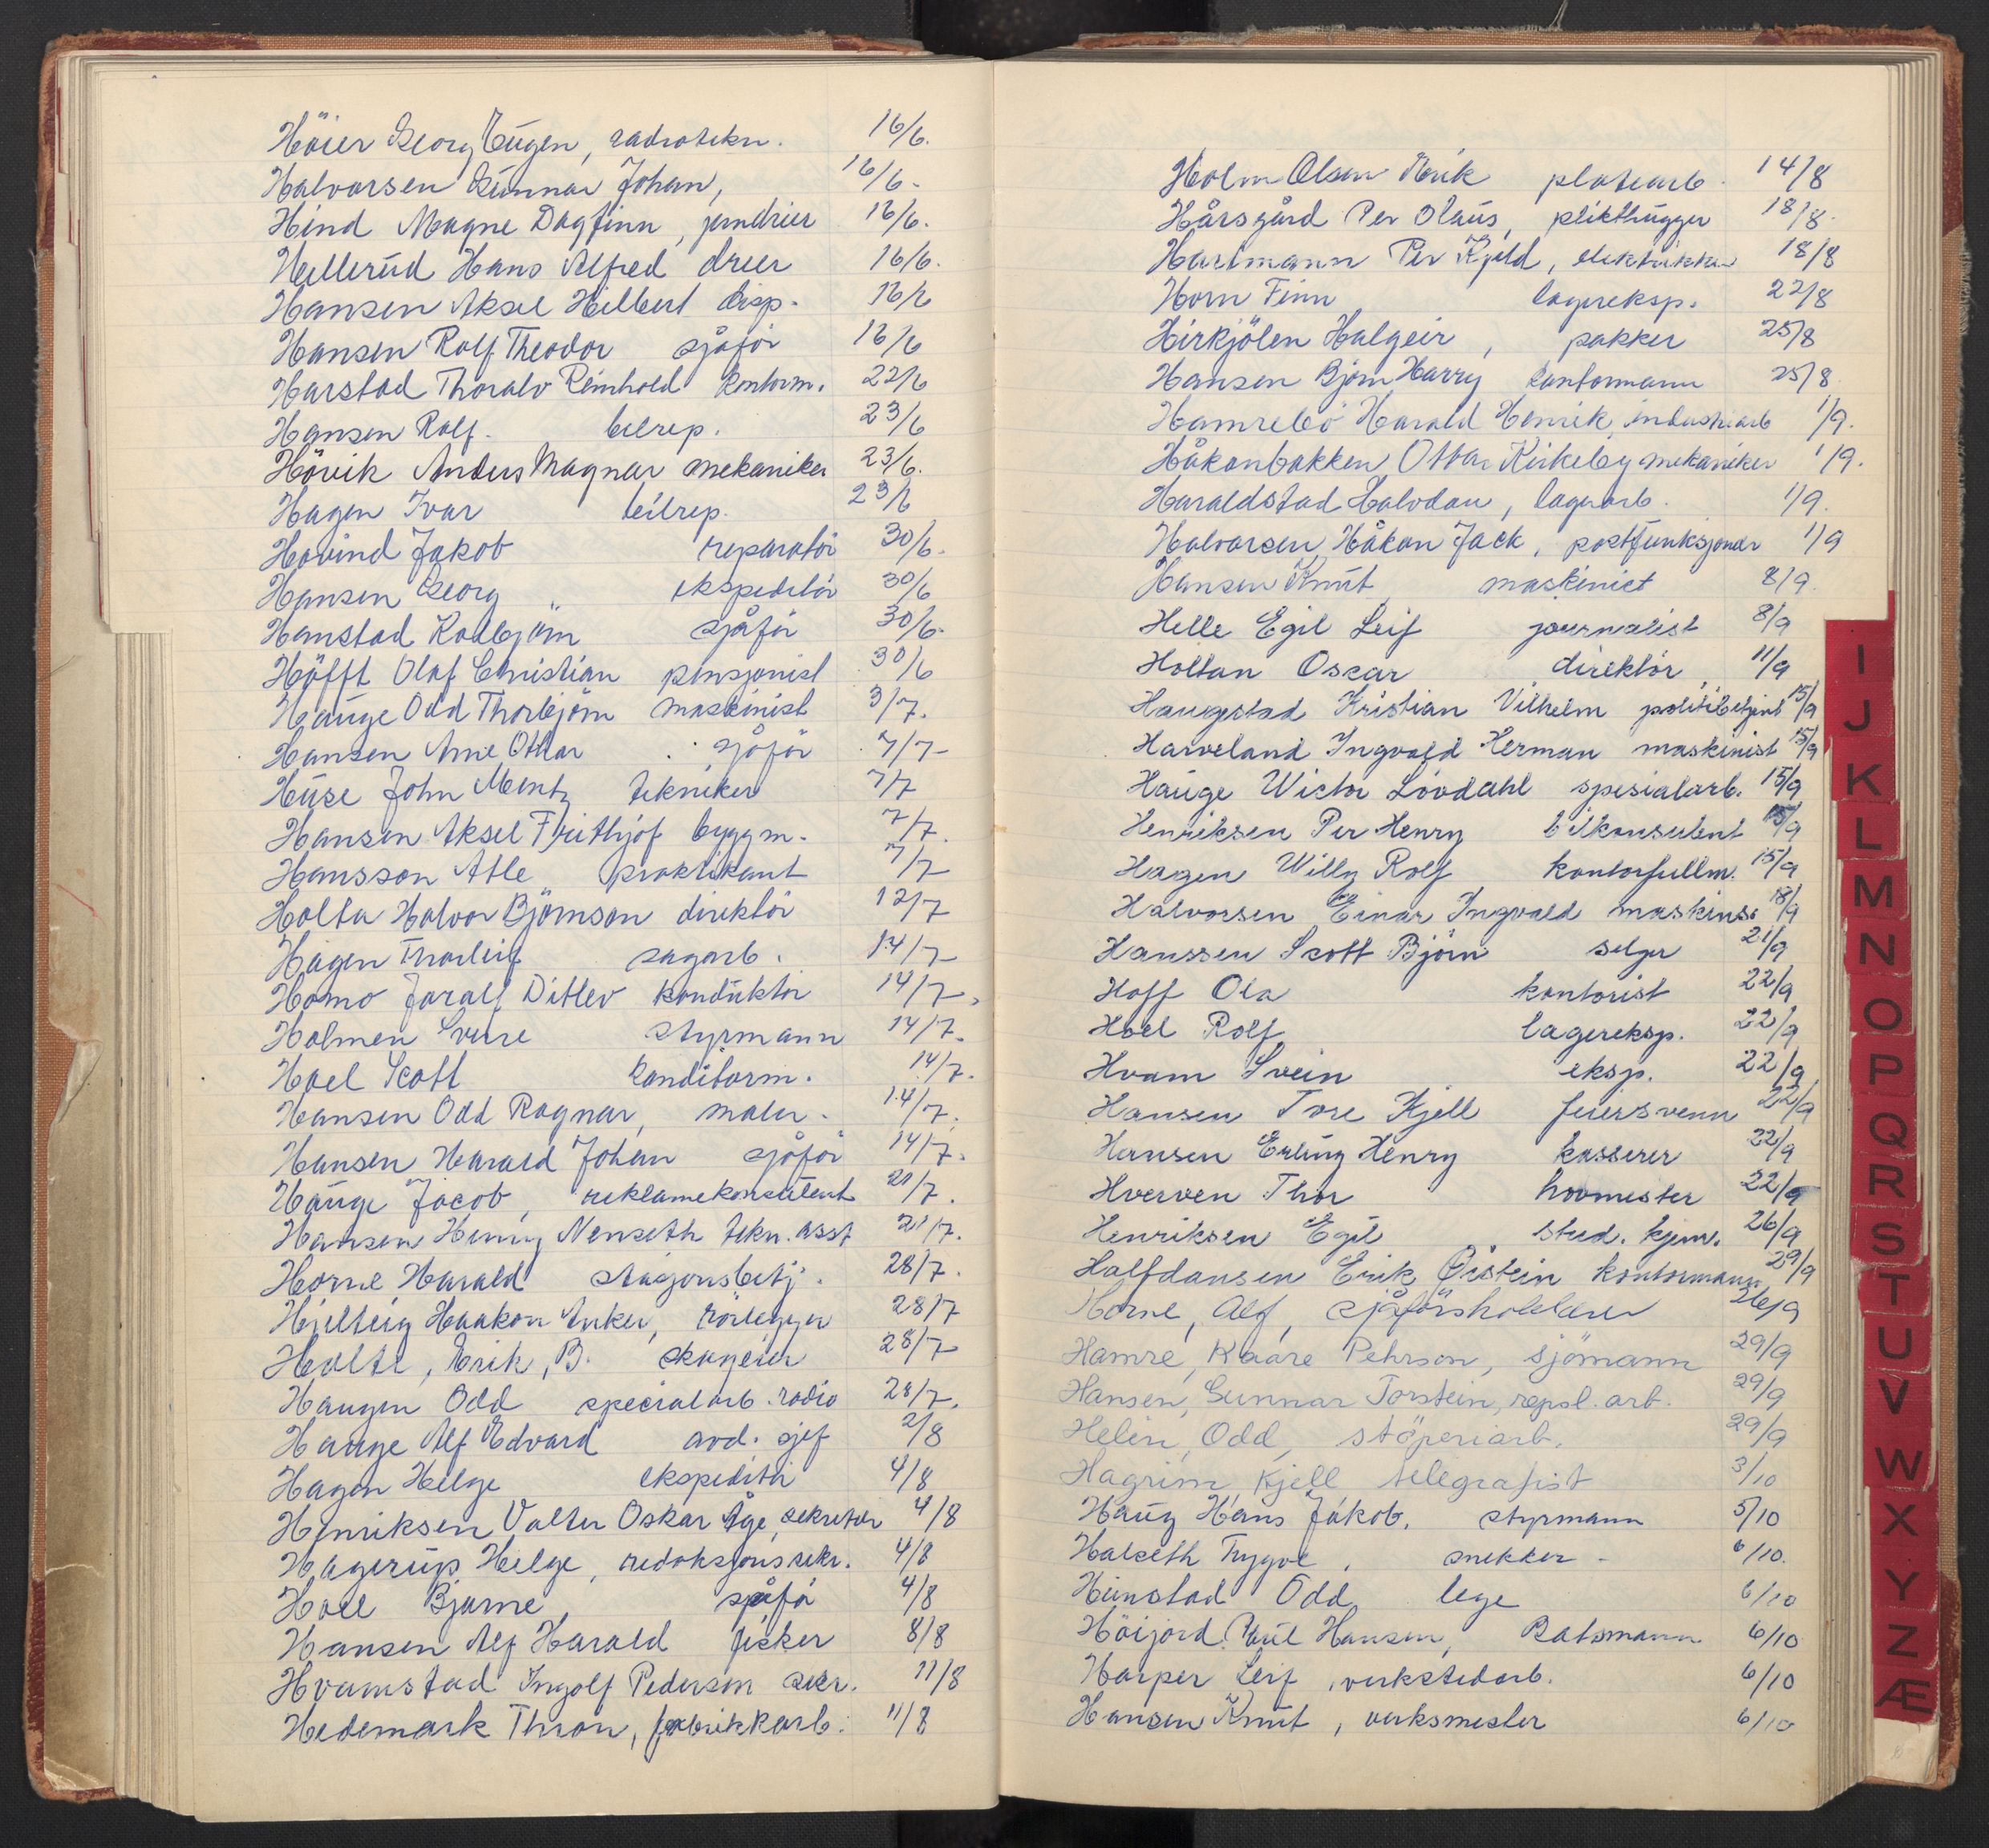 Höier Georg Eugen, radiotekn. 16/6.
Halvorsen Gunnar Johan, 16/6.
Hind Magne Dagfinn, jerndrier 16/6.
Hellerud Hans Alfred drier 16/6.
Hansen Aksel Hilbert disp. 16/6
Hansen Rolf Theodor sjåför 16/6
Harstad Thoralv Reinhold kontorm. 22/6
Hansen Rolf. bilrep. 23/6
Hövik Anders Magnar mekaniker 23/6.
Hagen Ivar bilrep. 23/6
Hovind Jakob reparatör 30/6.
Hansen Georg ekspeditör 30/6
Hanstad Kolbjörn sjåför 30/6.
Höfft Olaf Christian pensjonist 30/6
Hauge Odd Thorbjörn maskinist 3/7.
Hansen Arne Ottar sjåför 7/7
Huse John Mentz tekniker 7/7
Hansen Aksel Frithjof byggm. 7/7.
Hansson Atle praktikant 7/7
Holta Halvor Björnson direktör 12/7
Hagen Thorleif sagarb. 14/7
Homo Jaralf Ditlev konduktör 14/7.
Holmen Sverre styrmann 14/7.
Hoel Scott konditorm. 14/7.
Hansen Odd Ragnar, maler. 14/7.
Hansen Harald Johan sjåför 14/7.
Hauge Jacob, reklamekonsulent 21/7.
Hansen Henry Nenseth tekn. asst 21/7.
Horne Harald stasjonsbetj. 28/7.
Hjelteig Haakon Anker, rörlegger 28/7
Holte, Erik, B. skogeier 28/7
Haugen Odd specialarb. radio 28/7.
Hauge Alf Edvard avd. sjef 2/8
Hagen Helge ekspeditör 4/8
Henriksen Valter Oskar Åge, sekretær 4/8
Hagerup Helge, redaksjonssekr. 4/8
Hoel Bjarne sjåför 4/8
Hansen Alf Harald fisker 8/8
Hvamstad Ingolf Pedersen sekr. 11/8
Hedemark Thron, fabrikkarb. 11/8
Holm Olsen Erik platearb. 14/8
Hårsgård Per Olaus, plikthugger 18/8.
Hartmann Per Kjeld, elektriker 18/8
Horn Finn lagereksp. 22/8
Hirkjölen Halgeir, pakker 25/8
Hansen Bjørn Harry kontormann 25/8.
Hamrebö Harald Henrik, industriarb 1/9.
Håkonbakken Ottar Kirkeby mekaniker 1/9.
Haraldstad Halvdan, lagerarb. 1/9.
Halvorsen Håkon Jack, postfunksjonær 1/9
Hansen Knut maskinist 8/9.
Helle Egil Leif journalist 8/9
Holtan Oscar direktör 11/9
Haugstad Kristian Vilhelm politibetjent 15/9
Harveland Ingvald Herman maskinist 15/9
Hauge Victor Lövdahl spesialarb. 15/9
Henriksen Per Henry bilkonsulent 15/9
Hagen Willy Rolf kontorfullm. 15/9
Halvorsen Einar Ingvald maskins. 18/9
Hanssen Scott Björn selger 21/9
Hoff Ola kontorist 22/9
Hoel Rolf lagereksp. 22/9
Hvam Svein eksp. 22/9
Hansen Tore Kjell feiersvenn 22/9
Hansen Erling Henry kasserer 22/9
Hverven Thor hovmester 22/9
Henriksen Egil stud. kjem. 26/9
Halfdansen Erik Øistein kontormann 29/9
Horne, Alf, sjåförsholderen 26/9
Hamre, Kaare Pehrson, sjömann 29/9
Hansen, Gunnar Torstein, repsl. arb. 29/9
Helin, Odd, støperiarb. 29/9
Hagrim, Kjell telegrafist 3/10
Haug Hans Jakob, styrmann 5/10
Halseth Trygve, snekker 6/10.
Heimstad Odd lege 6/10
Höijord Paul Hansen, Batsmann 6/10
Harper Leif, verkstedarb. 6/10
Hansen Knut, verksmester 6/10
I
J
K
L
M
N
O
P
Q
R
S
T
U
V
W
X
Y
Z
Æ